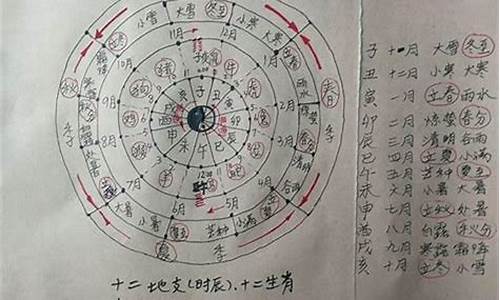 小雪 大雪 冬至 小寒
大寒
立春
雨水
惊蛰
春分
清明
谷雨
小满
芒种
夏至
小暑
大暑
立秋
处暑
秋分
立冬
春
季
夏 季
秋
季
11月 12月
1月
2月
3月
4月
5月
6月
7月
8月
9月
10月
牛
羊
猴
鸡
狗
子 丑 寅 卯 辰 巳 午 未 申 酉 戌 亥
子 十一月 大雪 冬至
丑 十二月 小寒 大寒
寅 一月 立春 雨水
卯 二月 惊蛰 春分
辰 三月 清明 谷雨
巳 四月 立夏 小满
午 五月 芒种 夏至
未 六月 小暑 大暑
申 七月 立秋 处暑
酉 八月 白露 秋分
戌 九月 寒露 霜降
亥 十月 立冬 小雪
十二地支(时辰)、十二生肖